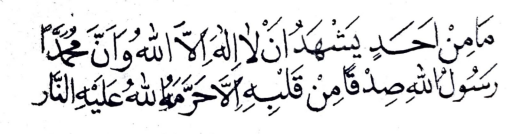 مَا مِنْ اَحَدٍ يَشْهَدُ اَنْ لَا اِلٰهَ اِلَّا اللهُ وَاَنَّ مُحَمَّدًا
رَسُوْلُ اللهِ صِدْقًا مِنْ قَلْبِهِ اِلَّا حَرَّمَهُ اللهُ عَلَيْهِ النَّار